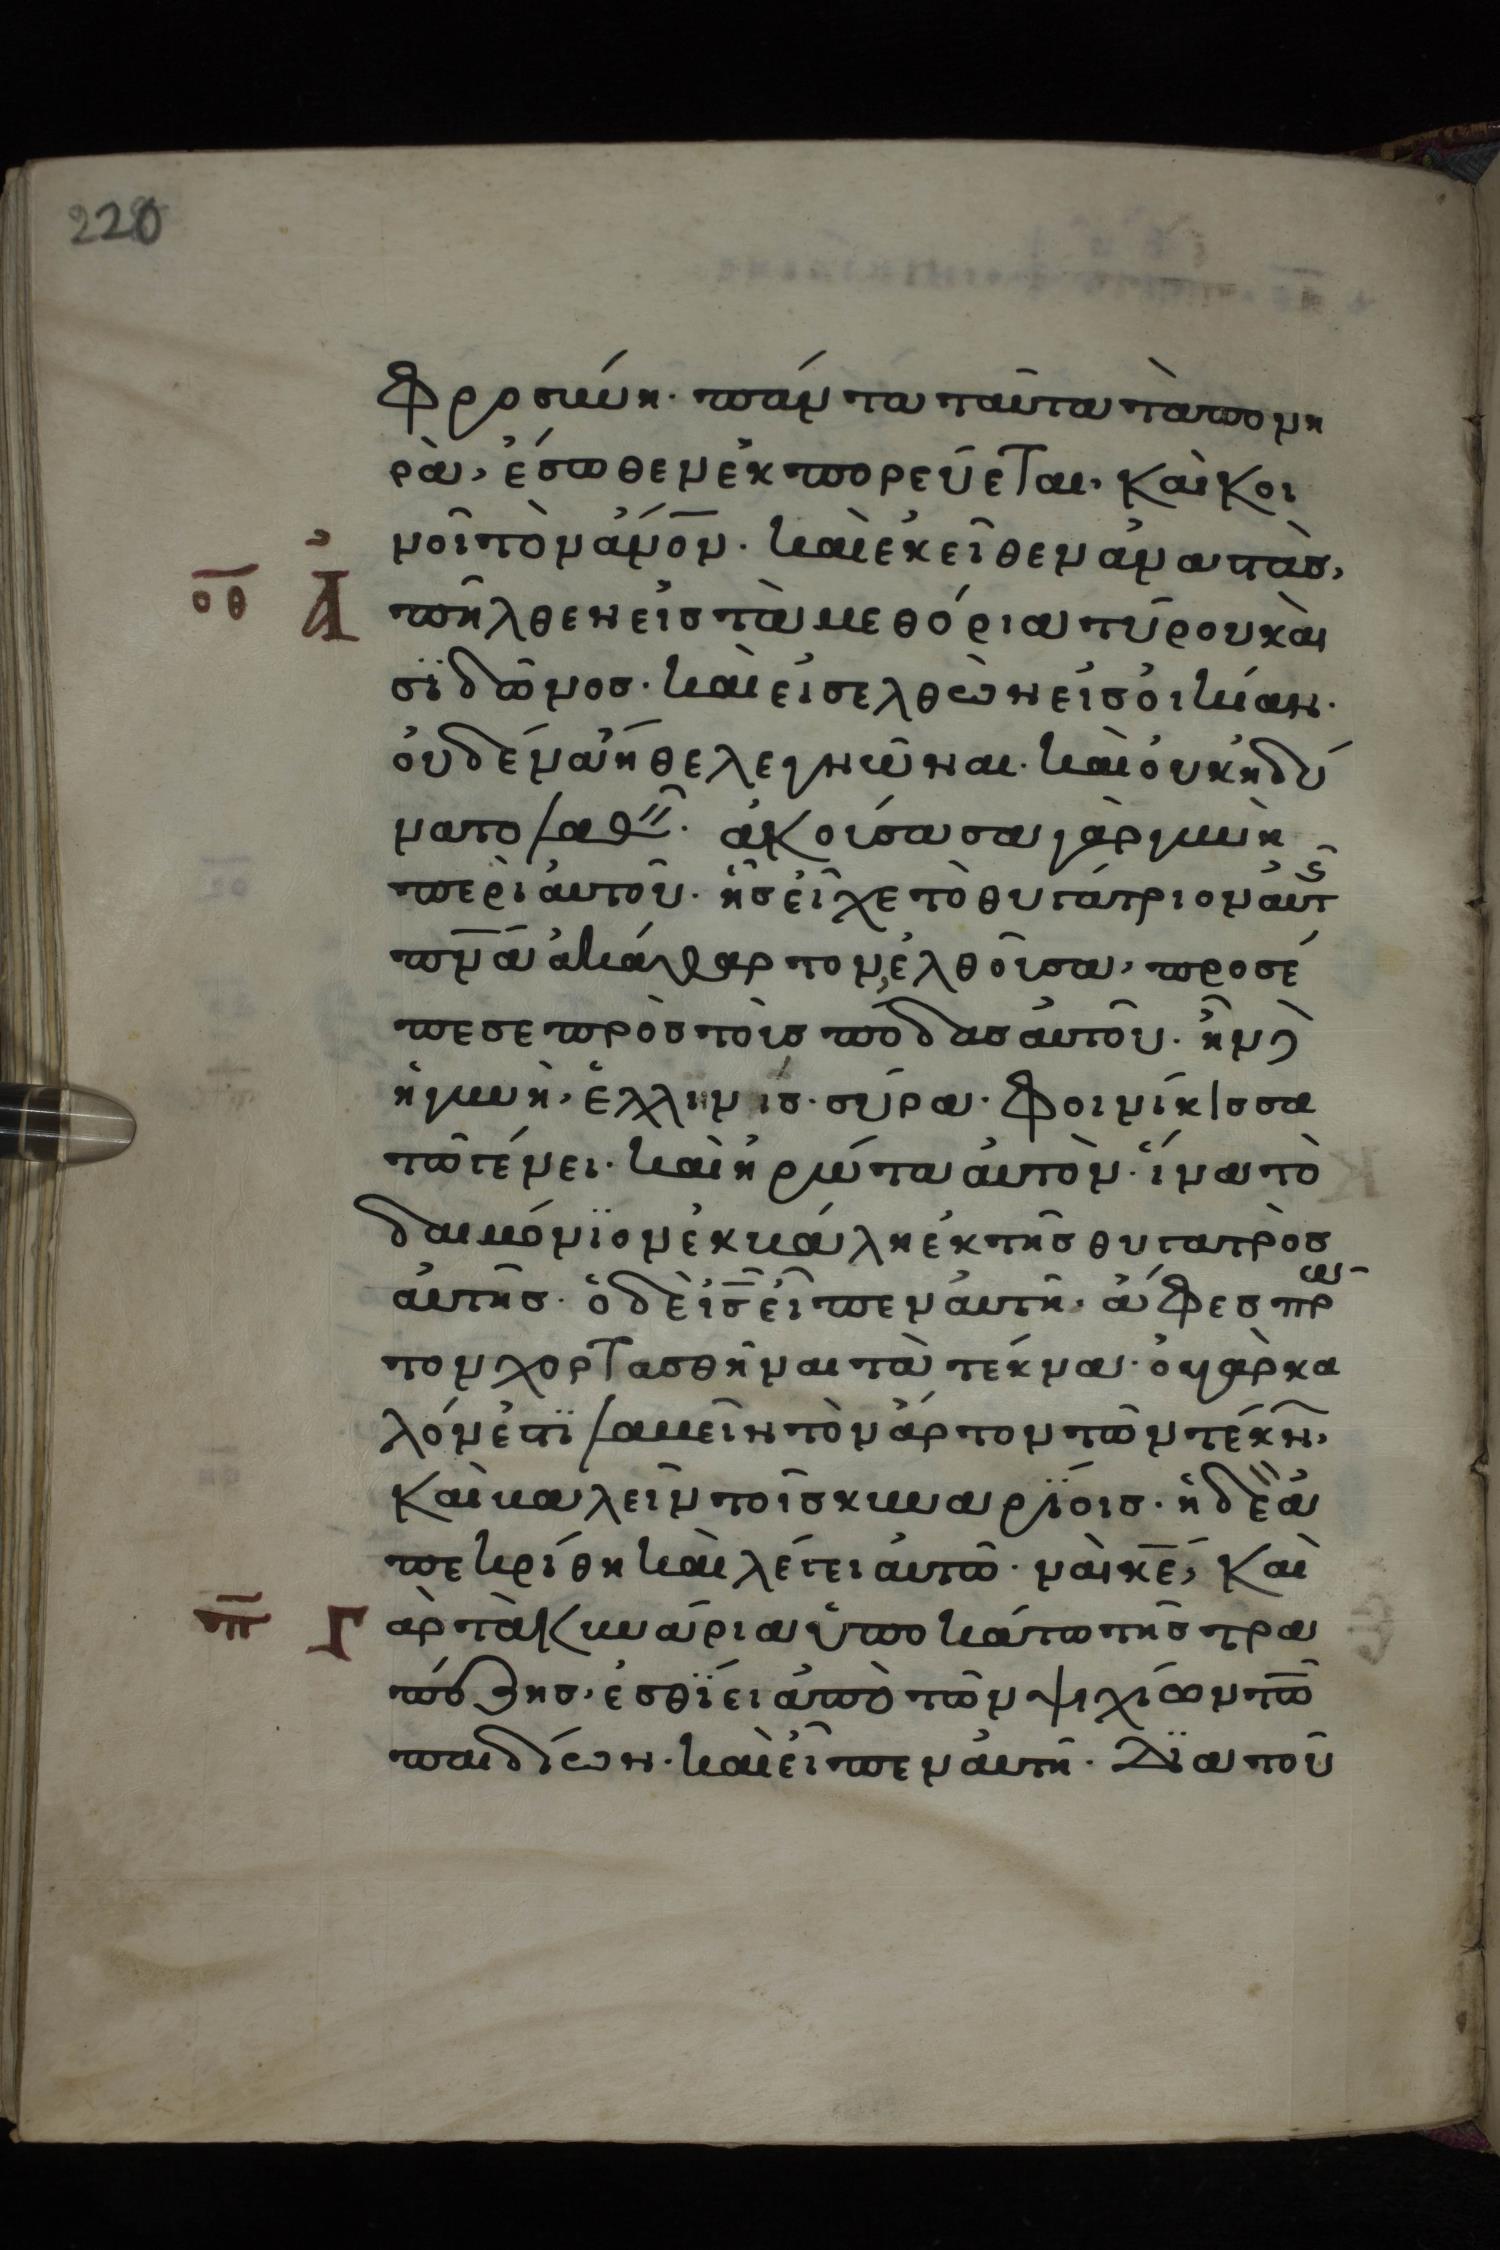 220
φροσύνη· πάντα ταῦτα τὰ πονη
ρὰ, ἔσωθεν ἐκπορεύεται, καὶ κοι
νοῖ τὸν ἄνον· καὶ ἐκεῖθεν ἀναστὰς,
οθ ἀπῆλθεν εἰς τὰ μεθόρια τύρου καὶ
σϊδῶνος· καὶ εἰσελθὼν εἰς οἰκίαν·
οὐδένα ἤθελε γνῶναι· καὶ οὐκ ἠδύ
νατο λαθεῖν· ἀκούσασα γὰρ γυνὴ
περὶ αὐτοῦ· ἧς εἶχε τὸ θυγάτριον αὐτῆς
πνα ἀκάθαρτον, ἐλθοῦσα, προσέ
πεσε πρὸς τοὺς πόδας αὐτοῦ· ἦν δὲ
ἡ γυνὴ, ἑλληνις· σύρα· φοινίκισσα
τῶ γένει· καὶ ἠρώτα αὐτὸν· ἵνα τὸ
δαιμόνϊον ἐκβάλη ἐκ τῆς θυγατρὸς
αὐτῆς· ὁ δὲ ις εἶπεν αὐτῆ, ἄφες πρῶ
τον χορτασθῆναι τὰ τέκνα· οὐ γὰρ κα
λόν ἐστϊ λαβεῖν τὸν ἄρτον τῶν τέκνων,
καὶ βαλεῖν τοῖς κυναρΐοις· ἡ δὲ ἀ
πεκρίθη καὶ λέγει αὐτῶ· ναὶ κε, καὶ
π Γὰρ τὰ κυνάρια ὑποκάτω τῆς τρα
πέζης, ἐσθΐει ἀπὸ τῶν ψιχίων τῶ
παιδίων· καὶ εἶπεν αὐτῆ· Δϊα τοῦ